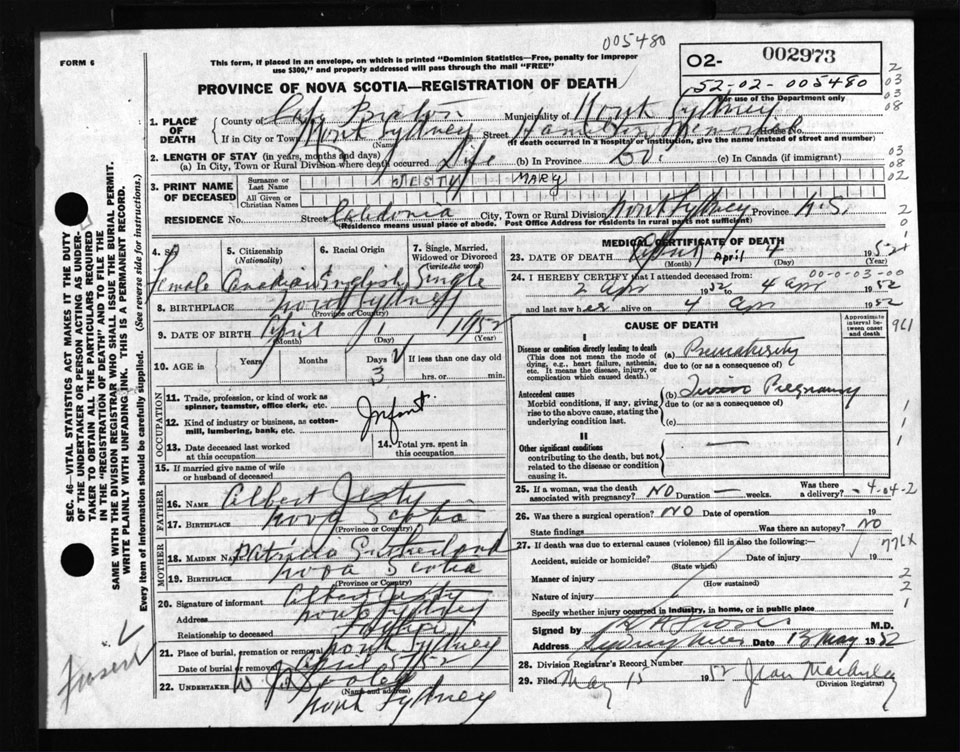 005480
FORM 6
This form, if placed in an envelope, on which is printed "Dominion Statistics—Free, penalty for improper
use $300," and properly addressed will pass through the mail "FREE"
O2- 002973
52-02-005480
For use of the Department only
PROVINCE OF NOVA SCOTIA—REGISTRATION OF DEATH
1. PLACE OF DEATH
County of Cape Breton Municipality of North Sydney
If in City or Town North Sydney Street Hamilton Memorial House No.
(Name) (If death occurred in a hospital or institution, give the name instead of street and number)
2. LENGTH OF STAY (in years, months and days)
(a) In City, Town or Rural Division where death occurred Life (b) In Province Do. (c) In Canada (if immigrant)
3. PRINT NAME OF DECEASED
Surname or Last Name JESTY
All Given or Christian Names MARY
RESIDENCE No. Street Caledonia City, Town or Rural Division North Sydney Province N.S.
(Residence means usual place of abode. Post Office Address for residents in rural parts not sufficient)
4. Sex Female
5. Citizenship (Nationality) Canadian
6. Racial Origin English
7. Single, Married, Widowed or Divorced (write the word) Single
8. BIRTHPLACE North Sydney
(Province or Country)
9. DATE OF BIRTH April 1 1952
(Month) (Day) (Year)
10. AGE in Years Months Days 3 If less than one day old
hrs. or min.
OCCUPATION
11. Trade, profession, or kind of work as spinner, teamster, office clerk, etc. Infant
12. Kind of industry or business, as cotton-mill, lumbering, bank, etc.
13. Date deceased last worked at this occupation
14. Total yrs. spent in this occupation
15. If married give name of wife or husband of deceased
FATHER
16. NAME Albert Jesty
17. BIRTHPLACE Nova Scotia
(Province or Country)
MOTHER
18. MAIDEN NAME Patricia Sutherland
19. BIRTHPLACE Nova Scotia
(Province or Country)
20. Signature of informant Albert Jesty
Address North Sydney
Relationship to deceased Father
21. Place of burial, cremation or removal North Sydney
Date of burial or removal April 5/52
22. UNDERTAKER W J Dooley
(Name and address)
North Sydney
MEDICAL CERTIFICATE OF DEATH
23. DATE OF DEATH April April 4 1952
(Month) (Day) (Year)
24. I HEREBY CERTIFY that I attended deceased from:
00-0-03-00
2 Apr 1952 to 4 Apr 1952
and last saw her alive on 4 Apr 1952
CAUSE OF DEATH
Approximate interval between onset and death
I
Disease or condition directly leading to death
(This does not mean the mode of dying, e.g., heart failure, asthenia, etc. It means the disease, injury, or complication which caused death.)
(a) Prematurity
due to (or as a consequence of)
Antecedent causes
Morbid conditions, if any, giving rise to the above cause, stating the underlying condition last.
(b) Twin Pregnancy
due to (or as a consequence of)
(c)
II
Other significant conditions
contributing to the death, but not related to the disease or condition causing it.
25. If a woman, was the death associated with pregnancy? NO Duration — weeks. Was there a delivery? -4-04-2
26. Was there a surgical operation? NO Date of operation 19
State findings Was there an autopsy? NO
27. If death was due to external causes (violence) fill in also the following:—
Accident, suicide or homicide? Date of injury 19
(State which)
Manner of injury
(How sustained)
Nature of injury
Specify whether injury occurred in industry, in home, or in public place
Signed by M.D.
Address Sydney Mines Date 13 May 1952
28. Division Registrar's Record Number
29. Filed May 15 1952 Jean
(Division Registrar)
961
776X
SEC. 46—VITAL STATISTICS ACT MAKES IT THE DUTY
OF THE UNDERTAKER OR PERSON ACTING AS UNDER-
TAKER TO OBTAIN ALL THE PARTICULARS REQUIRED
IN THE "REGISTRATION OF DEATH" AND TO FILE THE
SAME WITH THE DIVISION REGISTRAR WHO SHALL ISSUE THE BURIAL PERMIT.
WRITE PLAINLY WITH UNFADING INK. THIS IS A PERMANENT RECORD.
Every item of information should be carefully supplied. (See reverse side for instructions.)